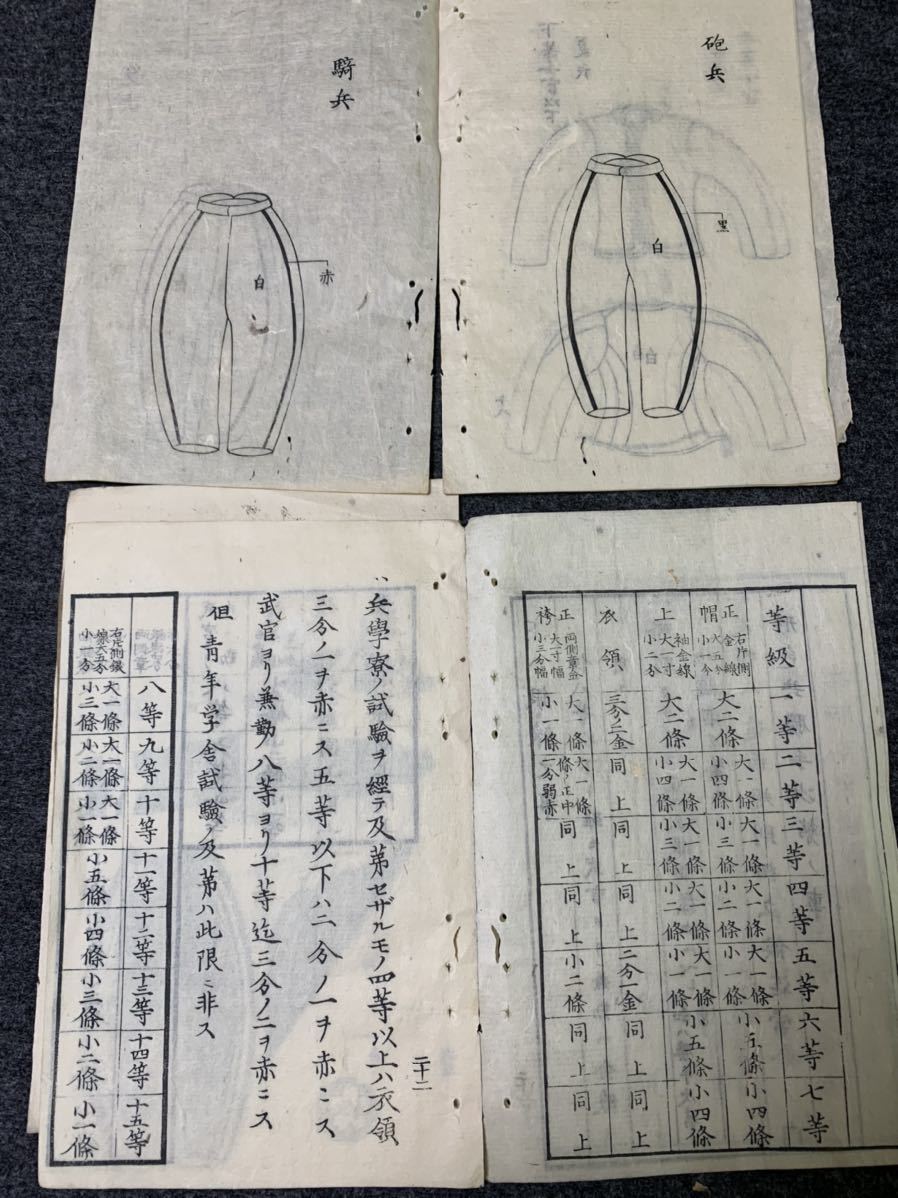 砲兵
黒
白
騎兵
赤
白
等級 一等 二等 三等 四等 五等 六等 七等
正帽 右片側金線大一寸小一分 大二條 大一條小四條 大一條小三條 大一條小二條 大一條小一條 小五條 小四條
上衣 袖金線大一寸小二分 大二條 大一條小四條 大一條小三條 大一條小二條 大一條小一條 小五條 小四條
領 三分ノ二金 同上 同上 同上 二分一金 同上 同上
正袴 両側章金大一寸幅小三分幅 大一條小一條 大一條ノ正中一分弱赤 同上 同上 小二條 同上 同上
二十二
兵學寮ノ試験ヲ經テ及苐セザルモノ四等以上ハ衣領
三分ノ一ヲ赤ニス五等以下ハ二分ノ一ヲ赤ニス
武官ヨリ兼勤ノ八等ヨリ十等迄三分ノ二ヲ赤ニス
但青年学舎試驗ノ及苐ハ此限ニ非ス
八等 九等 十等 十一等 十二等 十三等 十四等 十五等
右片側銀線大五分小一分 大一條小三條 大一條小二條 大一條小一條 小五條 小四條 小三條 小二條 小一條